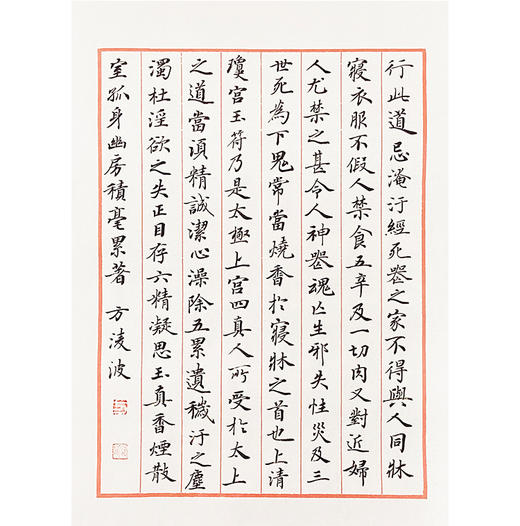 行此道忌淹汙經死喪之家不得與人同牀
寢衣服不假人禁食五辛及一切肉又對近婦
人尤禁之甚令人神喪魂亡生邪失性災及三
世死為下鬼常當燒香於寢牀之首也上清
瓊宮玉符乃是太極上宮四真人所受於太上
之道當須精誠潔心澡除五累遺穢汙之塵
濁杜淫欲之失正目存六精凝思玉真香煙散
室孤身幽房積毫累著 方淩波